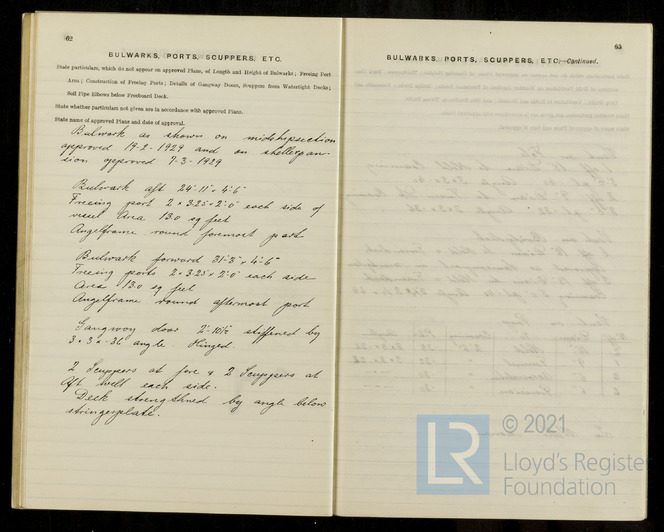 62
BULWARKS, PORTS, SCUPPERS, ETC.
State particulars, which do not appear on approved Plans, of Length and Height of Bulwarks; Freeing Port
Area; Construction of Freeing Ports; Details of Gangway Doors, Scuppers from Watertight Decks;
Soil Pipe Elbows below Freeboard Deck.
State whether particulars not given are in accordance with approved Plans.
State name of approved Plans and date of approval.
Bulwark as shown on midshipsection
approved 19-2-1929 and on shellexpan-
sion approved 7-3-1929
Bulwark aft 24'-11" × 4'-6"
Freeing port 2 × 3.25 × 2'-0" each side of
vessel Area 13.0 sq feet
Angelframe round foremost port
Bulwark forward 31'-3" × 4'-6"
Freeing ports 2 × 3.25 × 2'-0" each side
Area 13.0 sq feet
Angelframe round aftermost port
Gangway door 2'-10½ stiffened by
3 × 3 × .36 angle. Hinged.
2 Scuppers at fore & 2 Scuppers at
Aft well each side.
Deck strengthned by angle below
stringerplate.
63
BULWARKS, PORTS, SCUPPERS, ETC.—Continued.
LR
© 2021
Lloyd's Register
Foundation